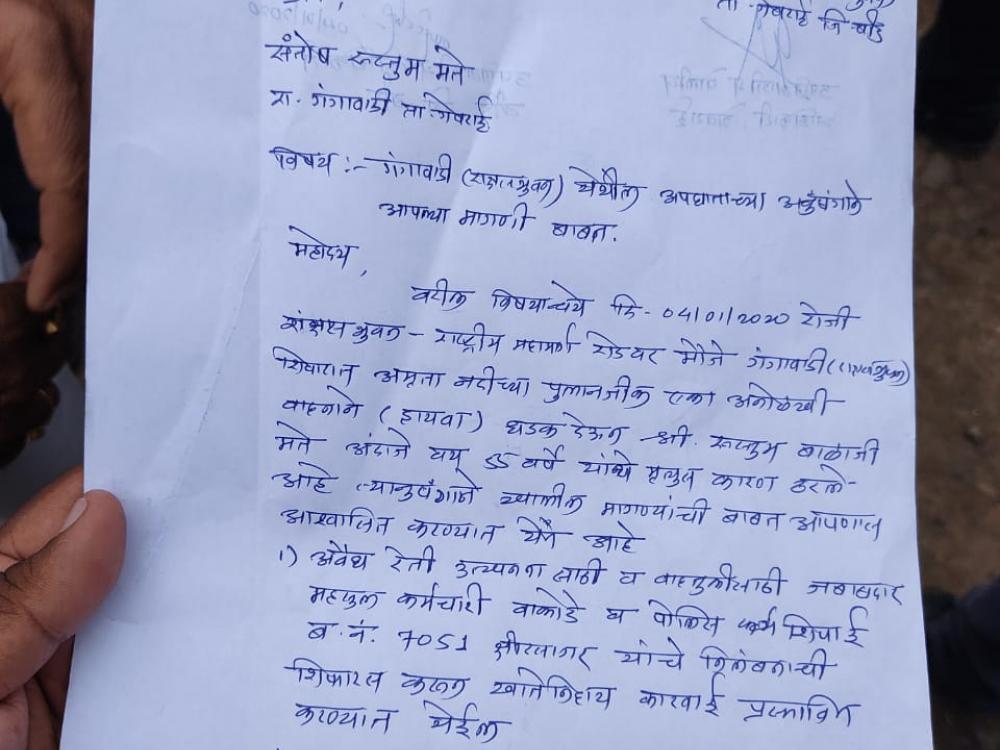 ता. गेवराई जि. बीड
संतोष रुस्तुम मते
रा. गंगावाडी ता. गेवराई
विषय :- गंगावाडी (राक्षसभुवन) येथील अपघाताच्या अनुषंगाने
आपल्या मागणी बाबत.
महोदय,
वरील विषयान्वये दि - 04/01/2020 रोजी
राक्षसभुवन - राष्ट्रीय महामार्ग रोडवर मौजे गंगावाडी (राक्षसभुवन)
शिवारात अमृता नदीच्या पुलानजीक एका अनोळखी
वाहनाने (हायवा) धडक देऊन श्री. रुस्तुम बाळाजी
मते अंदाजे वय 55 वर्षे यांचे मृत्युस कारण ठरले
आहे त्यानुषंगाने खालील मागण्यांची बाबत आपणास
आश्वासित करण्यात येत आहे
1) अवैध रेती उत्खनन साठी व वाहतुकीसाठी जबाबदार
महसुल कर्मचारी वाकोडे व पोलिस शिपाई
ब. नं. 7051 क्षीरसागर यांचे निलंबनाची
शिफारस करून खातेनिहाय कारवाई प्रस्तावित
करण्यात येईल